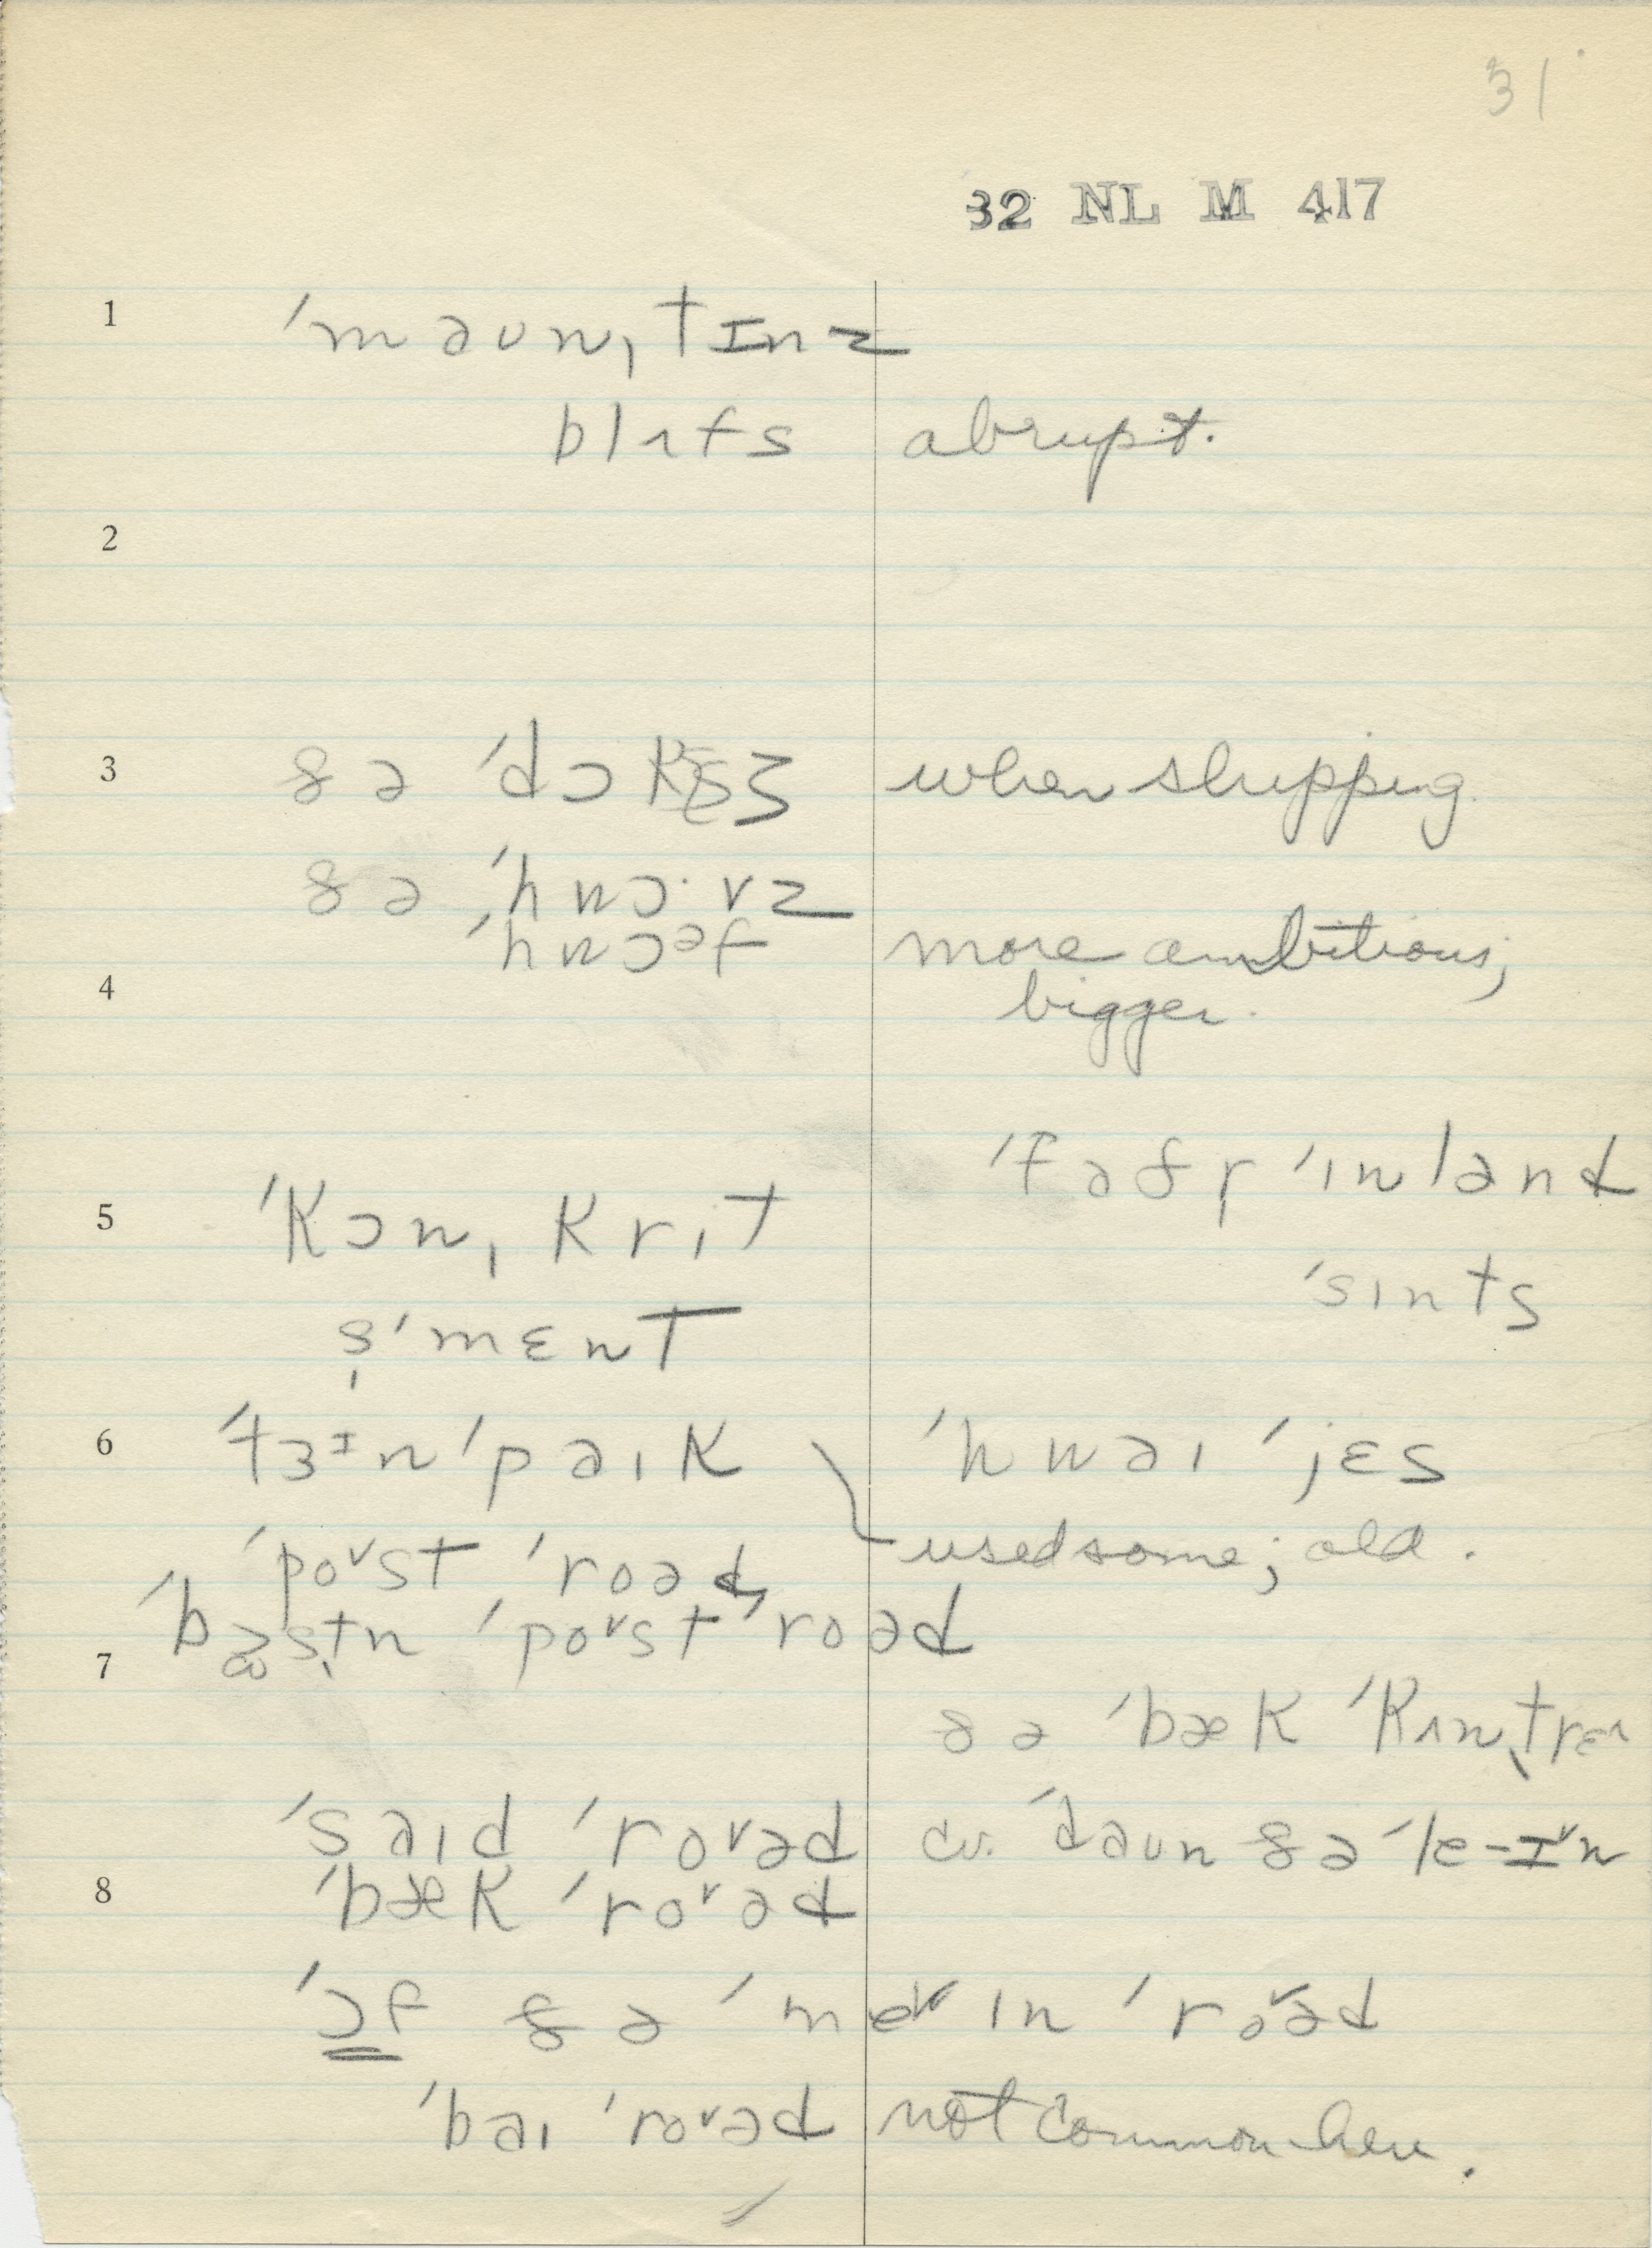 31
32 NL M 417
1 ˈmaʊnˌtɪnz
blʌfs abrupt.
2
3 ðə ˈdɔks when shipping
ðə ˈhwɔ·vz
ˈhwɔᵊf more ambitious,
4 bigger.
ˈfəðr̩ ˈɪnlənd
5 ˈkɔnˌkrit
ˈsɪnts
s̩ˈmɛnt
6 ˈtɜᶦnˈpaɪk ˈhwaɪ ˈjɛs
ˈpoᵛst ˈroəd, used some; old.
ˈbɒstn̩ ˈpoᵛst ˈroəd
7
ðə ˈbæk ˈkʌntrɛ
ˈsaɪd ˈroᵛəd cv. ˈdaʊn ðə ˈle-ɪᵛn
8 ˈbæk ˈroᵛəd
ˈɔf ðə ˈmeᵛɪn ˈroᵛəd
ˈbaɪ ˈroᵛəd not common here.